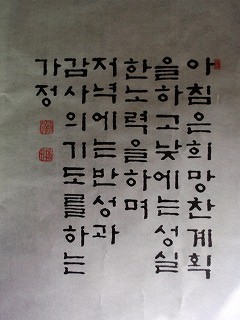 아침은희망찬계획
을하고낮에는성실
한노력을하며
저녁에는반성과
감사의기도를하는
가정